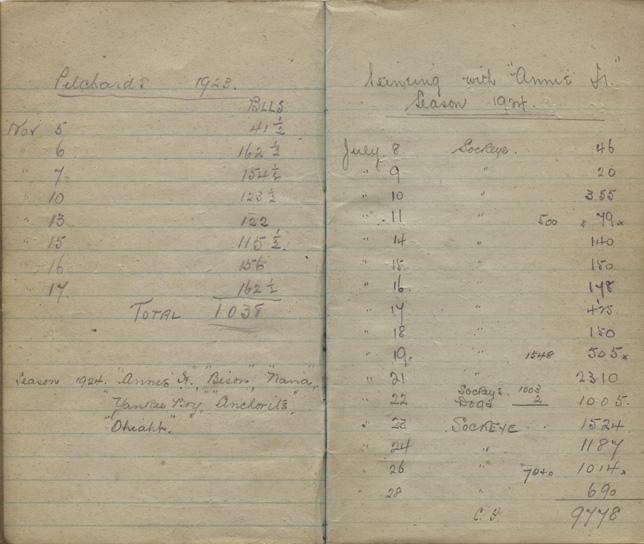 Pilchards 1923.
BLLS
Nov 5 41 ½
" 6 162 ½
" 7 154 ½
" 10 123 ½
" 13 122
" 15 115 ½
" 16 156
" 17 162 ½
TOTAL 1038
Season 1924. "Annie Jr." "Bison", "Nana",
"Yankee Boy,
Seineing with "Annie Jr."
Season 1924.
July 8 Sockeye. 46
" 9 " 20
" 10 " 355
" 11 " 500 x 79 x
" 14 " 140
" 15 " 150
" 16 " 178
" 17 " 425
" 18 " 150
" 19 " 1548 505 x
" 21 " 2310
" 22 Sockeye 1003
Dogs 2 1005.
" 23 SOCKEYE 1524
" 24 " 1187
" 26 " 7040 1014 x
" 28 " 690
C.F. 9778